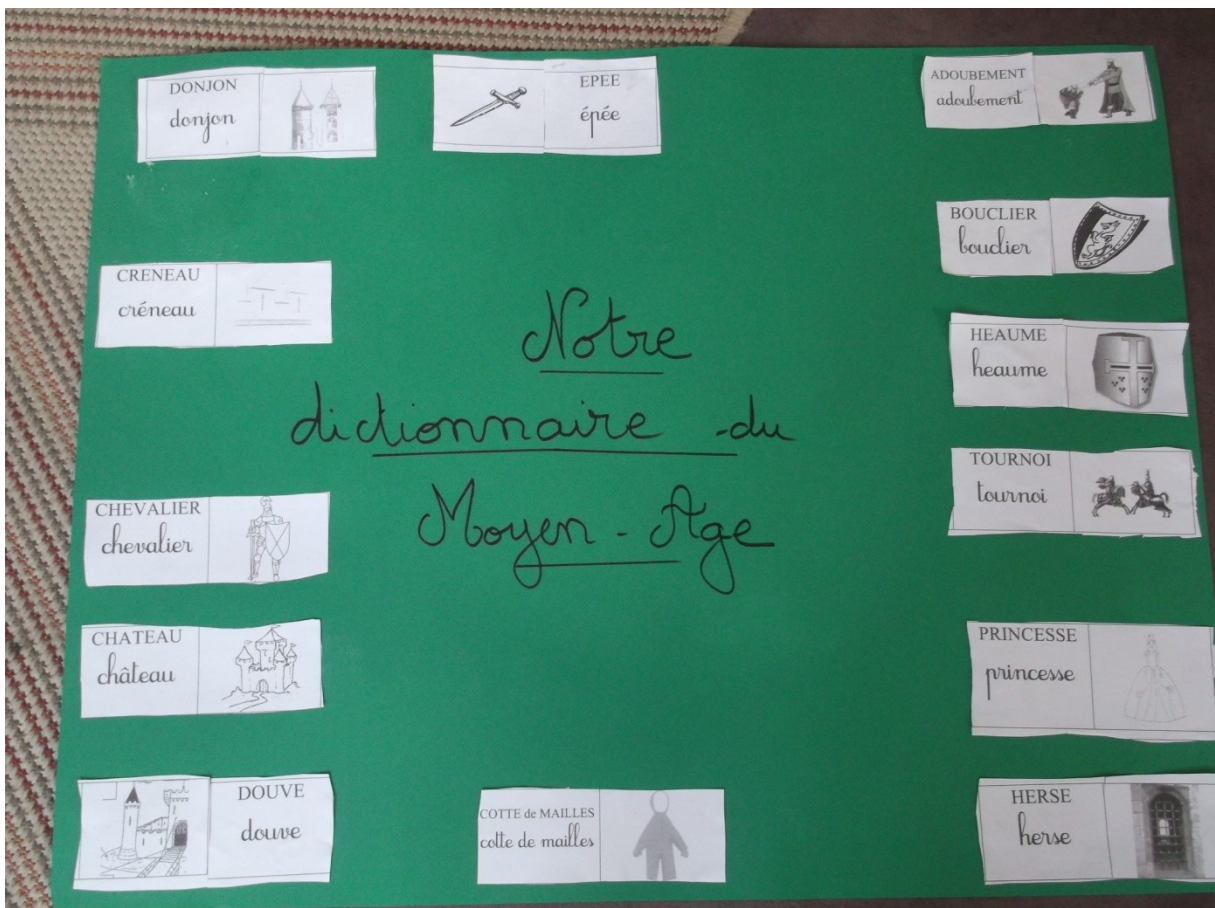 DONJON
donjon
EPEE
épée
ADOUBEMENT
adoubement
BOUCLIER
bouclier
CRENEAU
créneau
HEAUME
heaume
Notre
dictionnaire du
Moyen-Age
TOURNOI
tournoi
CHEVALIER
chevalier
CHATEAU
château
PRINCESSE
princesse
DOUVE
douve
COTTE de MAILLES
cotte de mailles
HERSE
herse